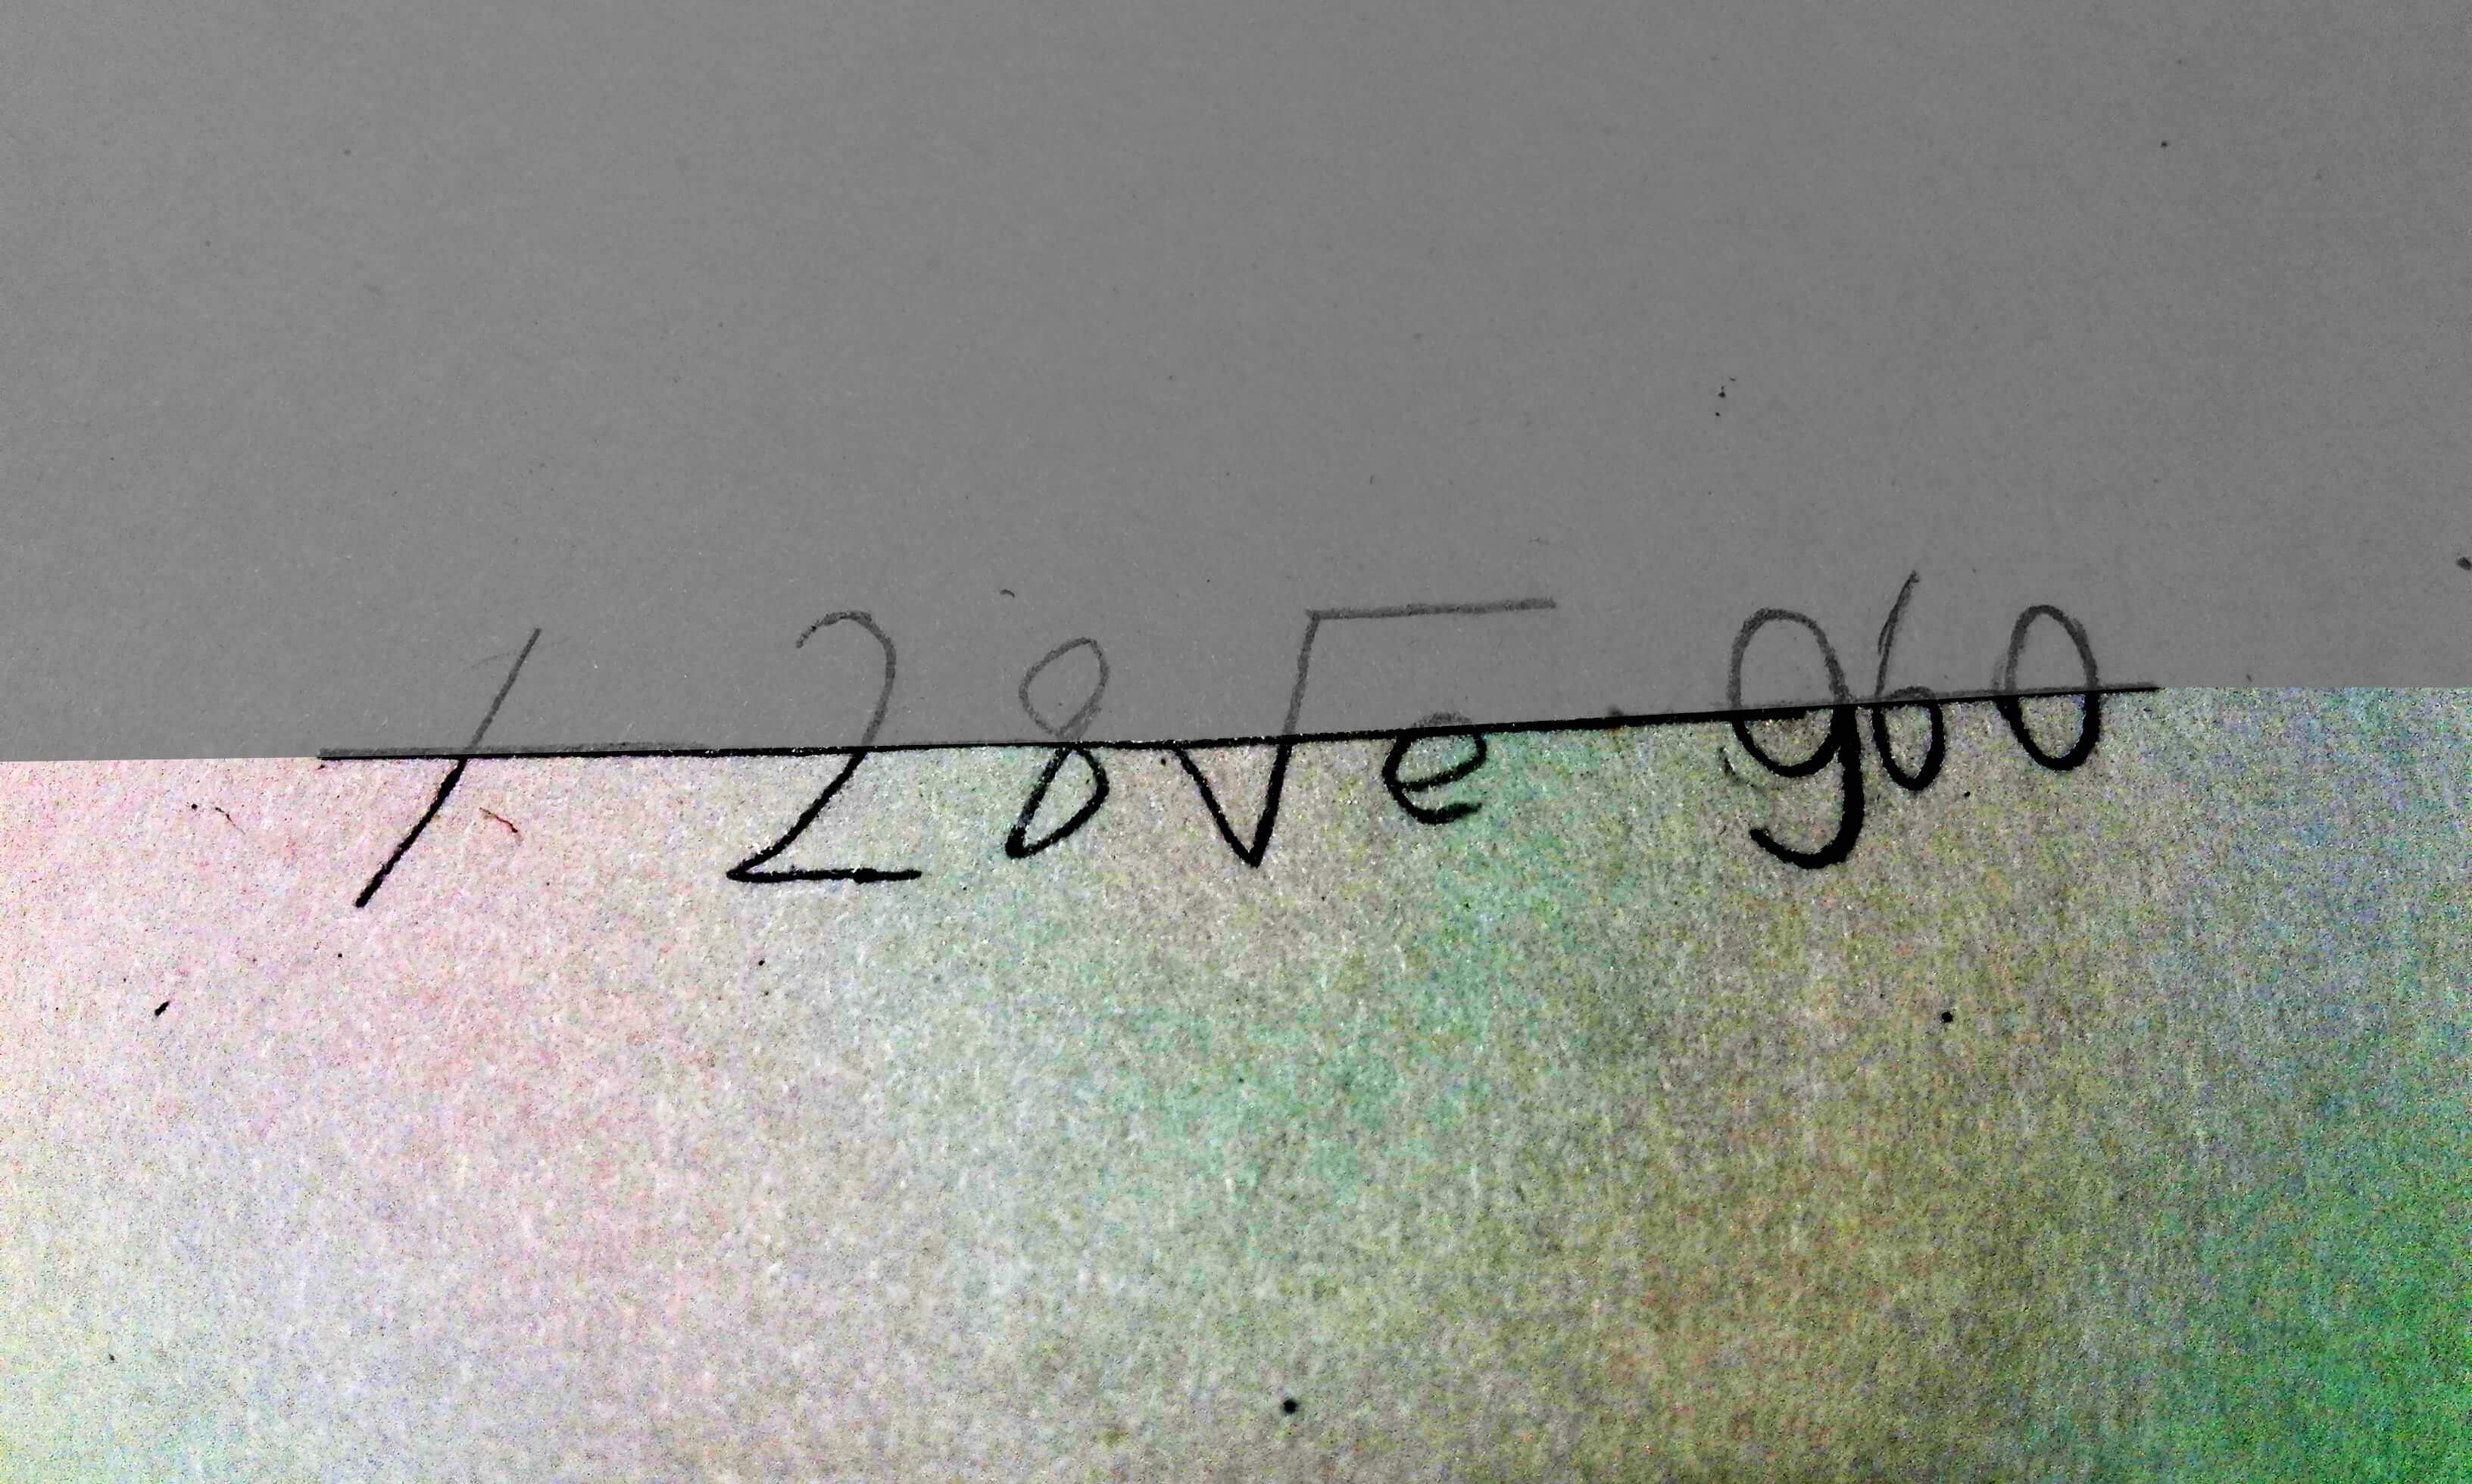 1 28√e 960